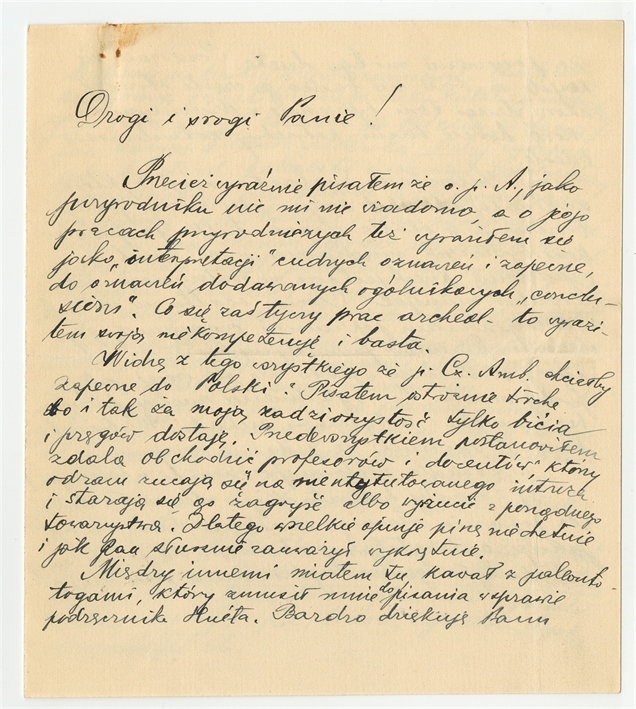 Drogi i srogi Panie!
Przecież wyraźnie pisałem że o. p. A., jako
przyrodniku nic mi nie wiadomo, a o jego
pracach przyrodniczych też wyraziłem się
jako "interpretacji" cudzych oznaczeń i zapewne,
do oznaczeń dodawanych ogólnikowych "conclu-
sions". Co się zaś tyczy prac archeol. to wyrazi-
łem swoją niekompetencję i basta.
Widzę z tego wszystkiego że p. Cz. Amb. chciałby
zapewne do "Polski". Pisałem ostrożnie trochę
bo i tak za moją zadziorzystość tylko bicia
i pręgów dostaję. Przedewszystkiem postanowiłem
zdala obchodzić profesorów i docentów, który
odrazu rzucają się na nientytutowanego intruza
i starają się go zagryść albo wyrzucić z porządnego
towarzystwa. Dlatego wszelkie opinje piszę niechętnie
i jak Pan słusznie zauważył wykrętnie.
Między innemi miałem tu kawał z paleonto-
logami, który zmusił mnie do pisania w sprawie
podręcznika Huéta. Bardzo dziękuję Panu